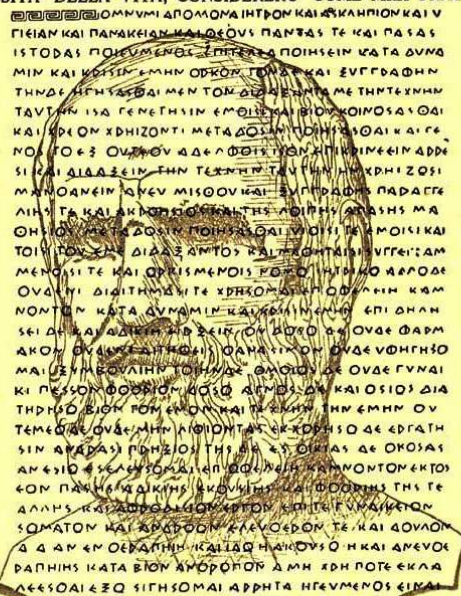 DELLA VITA, CONSIDERERÒ COME
ΟΜΝΥΜΙ ΑΠΟΛΛΩΝΑ ΙΗΤΡΟΝ ΚΑΙ ΑΣΚΛΗΠΙΟΝ ΚΑΙ Υ
ΓΙΕΙΑΝ ΚΑΙ ΠΑΝΑΚΕΙΑΝ ΚΑΙ ΘΕΟΥΣ ΠΑΝΤΑΣ ΤΕ ΚΑΙ ΠΑΣΑΣ
ΙΣΤΟΡΑΣ ΠΟΙΕΥΜΕΝΟΣ ΕΠΙΤΕΛΕΑ ΠΟΙΗΣΕΙΝ ΚΑΤΑ ΔΥΝΑ
ΜΙΝ ΚΑΙ ΚΡΙΣΙΝ ΕΜΗΝ ΟΡΚΟΝ ΤΟΝΔΕ ΚΑΙ ΞΥΓΓΡΑΦΗΝ
ΤΗΝΔΕ ΗΓΗΣΑΣΘΑΙ ΜΕΝ ΤΟΝ ΔΙΔΑΞΑΝΤΑ ΜΕ ΤΗΝ ΤΕΧΝΗΝ
ΤΑΥΤΗΝ ΙΣΑ ΓΕΝΕΤΗΣΙΝ ΕΜΟΙΣΙ ΚΑΙ ΒΙΟΥ ΚΟΙΝΩΣΑΣΘΑΙ
ΚΑΙ ΧΡΕΩΝ ΧΡΗΙΖΟΝΤΙ ΜΕΤΑΔΟΣΙΝ ΠΟΙΗΣΑΣΘΑΙ ΚΑΙ ΓΕ
ΝΟΣ ΤΟ ΕΞ ΟΥΤΕΟΥ ΑΔΕΛΦΟΙΣ ΙΣΟΝ ΕΠΙΚΡΙΝΕΕΙΝ ΑΡΡΕ
ΣΙ ΚΑΙ ΔΙΔΑΞΕΙΝ ΤΗΝ ΤΕΧΝΗΝ ΤΑΥΤΗΝ ΗΝ ΧΡΗΙΖΩΣΙ
ΜΑΝΘΑΝΕΙΝ ΑΝΕΥ ΜΙΣΘΟΥ ΚΑΙ ΞΥΓΓΡΑΦΗΣ ΠΑΡΑΓΓΕ
ΛΙΗΣ ΤΕ ΚΑΙ ΑΚΡΟΗΣΙΟΣ ΚΑΙ ΤΗΣ ΛΟΙΠΗΣ ΑΠΑΣΗΣ ΜΑ
ΘΗΣΙΟΣ ΜΕΤΑΔΟΣΙΝ ΠΟΙΗΣΑΣΘΑΙ ΥΙΟΙΣΙ ΤΕ ΕΜΟΙΣΙ ΚΑΙ
ΤΟΙΣΙ ΤΟΥ ΕΜΕ ΔΙΔΑΞΑΝΤΟΣ ΚΑΙ ΜΑΘΗΤΑΙΣΙ
ΜΕΝΟΙΣΙ ΤΕ ΚΑΙ ΩΡΚΙΣΜΕΝΟΙΣ ΝΟΜΩ ΙΗΤΡΙΚΩ ΑΛΛΩ ΔΕ
ΟΥΔΕΝΙ ΔΙΑΙΤΗΜΑΣΙ ΤΕ ΧΡΗΣΟΜΑΙ ΕΠ ΩΦΕΛΕΙΗ ΚΑΜ
ΝΟΝΤΩΝ ΚΑΤΑ ΔΥΝΑΜΙΝ ΚΑΙ ΚΡΙΣΙΝ ΕΜΗΝ ΕΠΙ ΔΗΛΗ
ΣΕΙ ΔΕ ΚΑΙ ΑΔΙΚΙΗ ΕΙΡΞΕΙΝ ΟΥ ΔΩΣΩ ΔΕ ΟΥΔΕ ΦΑΡΜ
ΑΚΟΝ ΟΥΔΕΝΙ ΑΙΤΗΘΕΙΣ ΘΑΝΑΣΙΜΟΝ ΟΥΔΕ ΥΦΗΓΗΣΟ
ΜΑΙ ΞΥΜΒΟΥΛΙΗΝ ΤΟΙΗΝΔΕ ΟΜΟΙΩΣ ΔΕ ΟΥΔΕ ΓΥΝΑΙ
ΚΙ ΠΕΣΣΟΝ ΦΘΟΡΙΟΝ ΔΩΣΩ ΑΓΝΩΣ ΔΕ ΚΑΙ ΟΣΙΩΣ ΔΙΑ
ΤΗΡΗΣΩ ΒΙΟΝ ΤΟΝ ΕΜΟΝ ΚΑΙ ΤΕΧΝΗΝ ΤΗΝ ΕΜΗΝ ΟΥ
ΤΕΜΕΩ ΔΕ ΟΥΔΕ ΜΗΝ ΛΙΘΙΩΝΤΑΣ ΕΚΧΩΡΗΣΩ ΔΕ ΕΡΓΑΤΗ
ΣΙΝ ΑΝΔΡΑΣΙ ΠΡΗΞΙΟΣ ΤΗΣΔΕ ΕΣ ΟΙΚΙΑΣ ΔΕ ΟΚΟΣΑΣ
ΑΝ ΕΣΙΩ ΕΣΕΛΕΥΣΟΜΑΙ ΕΠ ΩΦΕΛΕΙΗ ΚΑΜΝΟΝΤΩΝ ΕΚΤΟΣ
ΕΩΝ ΠΑΣΗΣ ΑΔΙΚΙΗΣ ΕΚΟΥΣΙΗΣ ΚΑΙ ΦΘΟΡΙΗΣ ΤΗΣ ΤΕ
ΑΛΛΗΣ ΚΑΙ ΑΦΡΟΔΙΣΙΩΝ ΕΡΓΩΝ ΕΠΙ ΤΕ ΓΥΝΑΙΚΕΙΩΝ
ΣΩΜΑΤΩΝ ΚΑΙ ΑΝΔΡΩΩΝ ΕΛΕΥΘΕΡΩΝ ΤΕ ΚΑΙ ΔΟΥΛΩΝ
Α Δ ΑΝ ΕΝ ΘΕΡΑΠΗΙΗ Η ΙΔΩ Η ΑΚΟΥΣΩ Η ΚΑΙ ΑΝΕΥ ΘΕ
ΡΑΠΗΙΗΣ ΚΑΤΑ ΒΙΟΝ ΑΝΘΡΩΠΩΝ Α ΜΗ ΧΡΗ ΠΟΤΕ ΕΚΛΑ
ΛΕΕΣΘΑΙ ΕΞΩ ΣΙΓΗΣΟΜΑΙ ΑΡΡΗΤΑ ΗΓΕΥΜΕΝΟΣ ΕΙΝΑΙ